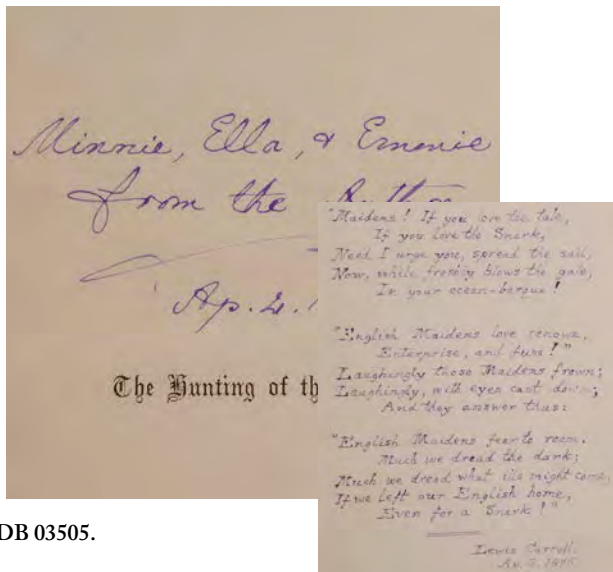 Minnie, Ella, & Emmie
from the Author
Ap. 4. 1
The Hunting of th
"Maidens! If you love the tale,
If you love the Snark,
Need I urge you, spread the sail,
Now, while freshly blows the gale,
In your ocean-barque!
"English Maidens love renown,
Enterprise, and fuss!"
Laughingly those Maidens frown;
Laughingly, with eyes cast down;
And they answer thus:
"English Maidens fear to roam.
Much we dread the dark;
Much we dread what ills might come,
If we left our English home,
Even for a Snark!"
Lewis Carroll.
Ap. 5. 1876
DB 03505.